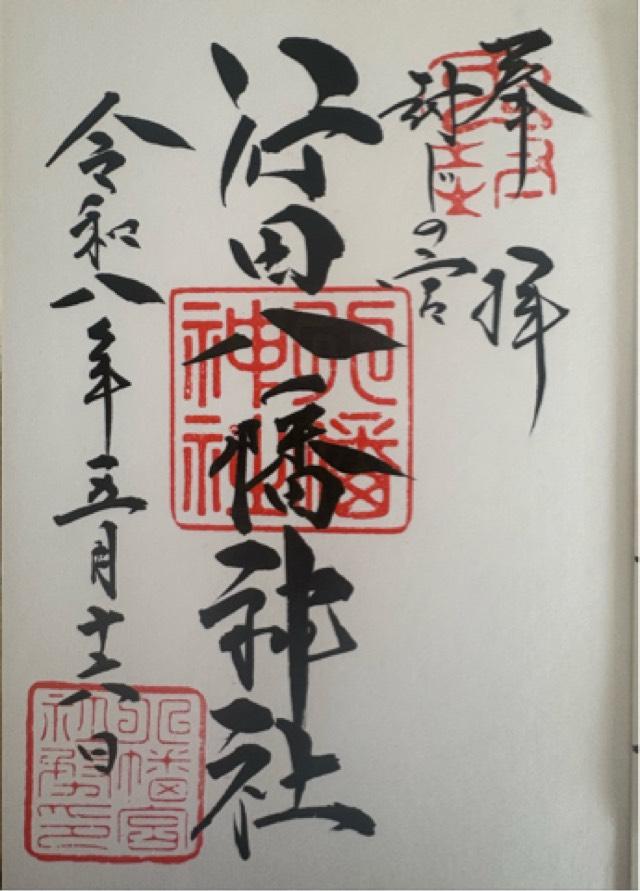 奉拝
封じの宮
行田八幡神社
八幡
神社
令和八年五月十六日
八幡宮
社務印